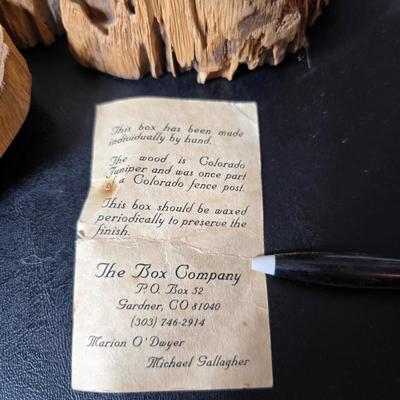 This box has been made
individually by hand.
The wood is Colorado
Juniper and was once part
of a Colorado fence post.
This box should be waxed
periodically to preserve the
finish.
The Box Company
P.O. Box 52
Gardner, CO 81040
(303) 746-2914
Marion O'Dwyer
Michael Gallagher